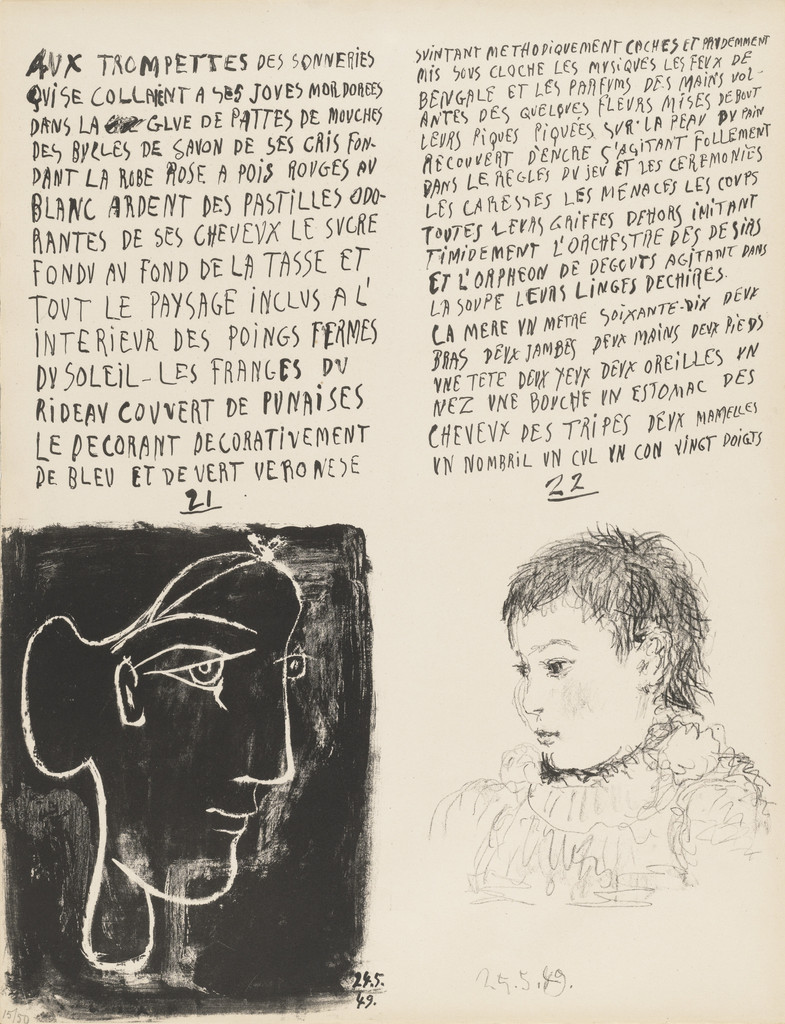 AUX TROMPETTES DES SONNERIES
QUI SE COLLAIENT A SES JOVES MORDOREES
DANS LA GLUE DE PATTES DE MOUCHES
DES BULLES DE SAVON DE SES CRIS FON-
DANT LA ROBE ROSE A POIS ROUGES AU
BLANC ARDENT DES PASTILLES ODO-
RANTES DE SES CHEVEUX LE SUCRE
FONDU AU FOND DE LA TASSE ET
TOUT LE PAYSAGE INCLUS A L'
INTERIEUR DES POINGS FERMES
DU SOLEIL - LES FRANGES DU
RIDEAU COUVERT DE PUNAISES
LE DECORANT DECORATIVEMENT
DE BLEU ET DE VERT VERONESE
21
SUINTANT METHODIQUEMENT CACHES ET PRUDEMMENT
MIS SOUS CLOCHE LES MUSIQUES LES FEUX DE
BENGALE ET LES PARFUMS DES MAINS VOL-
ANTES DES QUELQUES FLEURS MISES DEBOUT
LEURS PIQUES PIQUEES SUR LA PEAU DU PAIN
RECOUVERT D'ENCRE S'AGITANT FOLLEMENT
DANS LE REGLES DU JEU ET LES CEREMONIES
LES CARESSES LES MENACES LES COUPS
TOUTES LEURS GRIFFES DEHORS IMITANT
TIMIDEMENT L'ORCHESTRE DES DESIRS
ET L'ORPHEON DE DEGOUTS AGITANT DANS
LA SOUPE LEURS LINGES DECHIRES.
LA MERE UN METRE SOIXANTE-DIX DEUX
BRAS DEUX JAMBES DEUX MAINS DEUX PIEDS
UNE TETE DEUX YEUX DEUX OREILLES UN
NEZ UNE BOUCHE UN ESTOMAC DES
CHEVEUX DES TRIPES DEUX MAMELLES
UN NOMBRIL UN CUL UN CON VINGT DOIGTS
22
24.5.
49.
24.5.49.
15/50